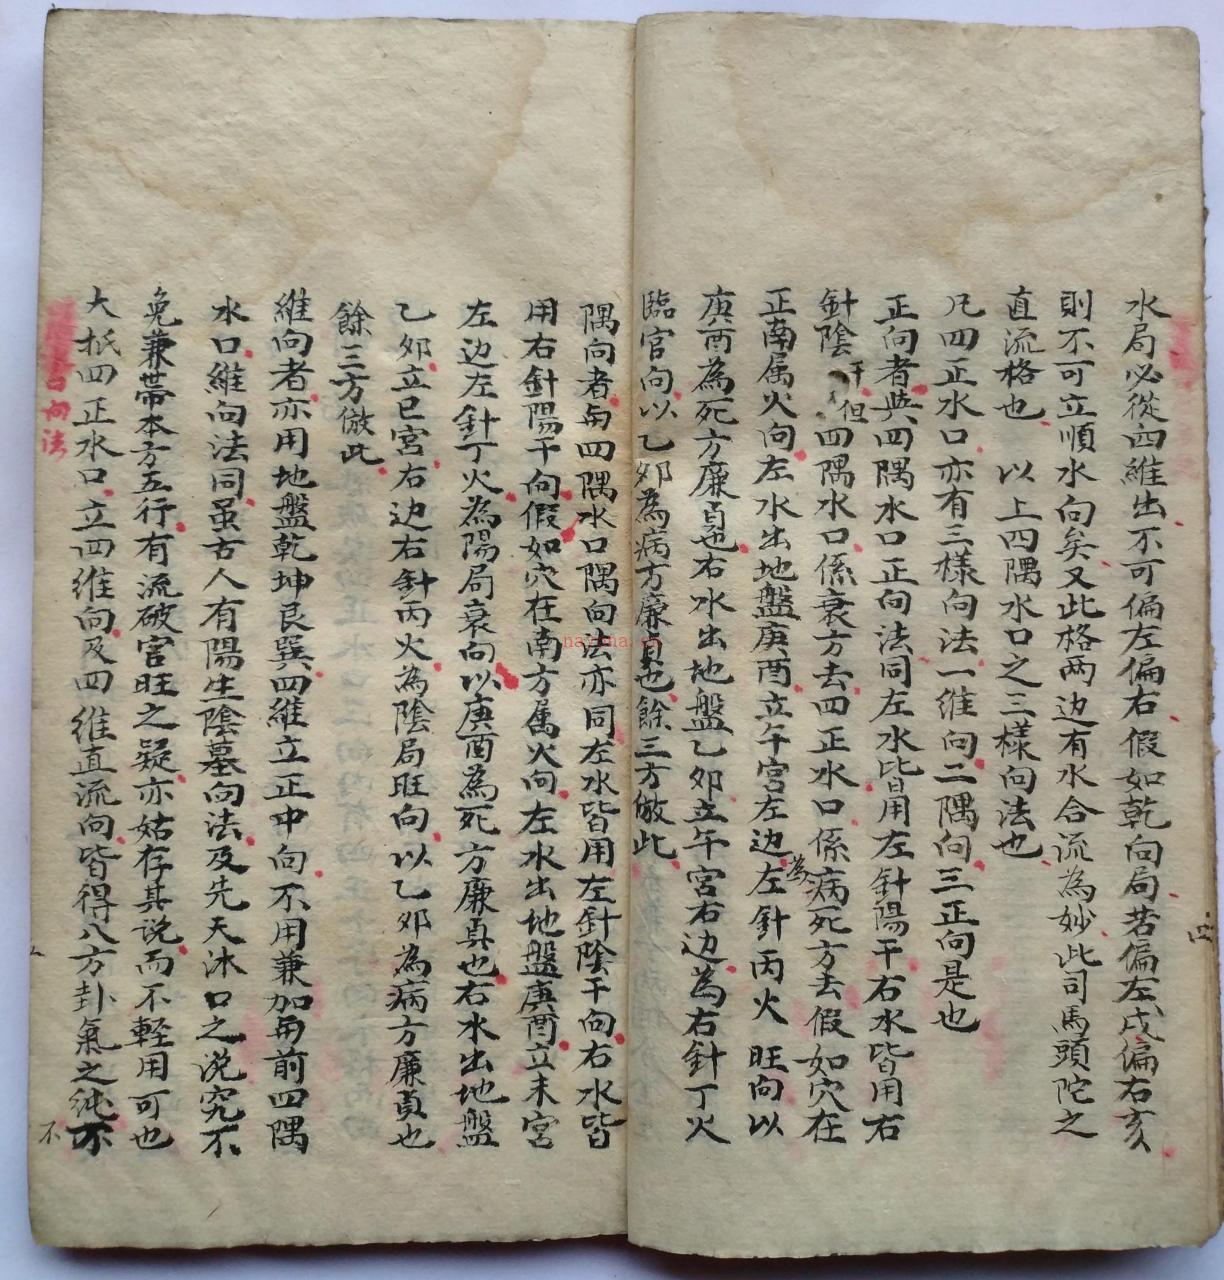 水局必從四維出不可偏左偏右假如乾向局若偏左戌偏右亥
則不可立順水向矣又此格两边有水合流為妙此司馬頭陀之
直流格也 以上四隅水口之三樣向法也
凡四正水口亦有三樣向法一維向二隅向三正向是也
正向者與四隅水口正向法同左水皆用左針陽干右水皆用右
針陰干但四隅水口係衰方去四正水口係病死方去假如穴在
正南属火向左水出地盤庚酉立午宮左边為左針丙火旺向以
庚酉為死方廉貞也右水出地盤乙夘立午宮右边為右針丁火
臨官向以乙夘為病方廉貞也餘三方倣此
隅向者與四隅水口隅向法亦同左水皆用左針陰干向右水皆
用右針陽干向假如穴在南方属火向左水出地盤庚酉立未宮
左边左針丁火為陽局衰向以庚酉為死方廉真也右水出地盤
乙夘立巳宮右边右針丙火為陰局旺向以乙夘為病方廉貞也
餘三方倣此
維向者亦用地盤乾坤艮巽四維立正中向不用兼加與前四隅
水口維向法同虽古人有陽生陰墓向法及先天沐口之说究不
免兼帶本方五行有流破官旺之疑亦姑存其说而不輕用可也
大抵四正水口立四維向及四維直流向皆得八方卦氣之純不
向法
四
不
nayona.cn